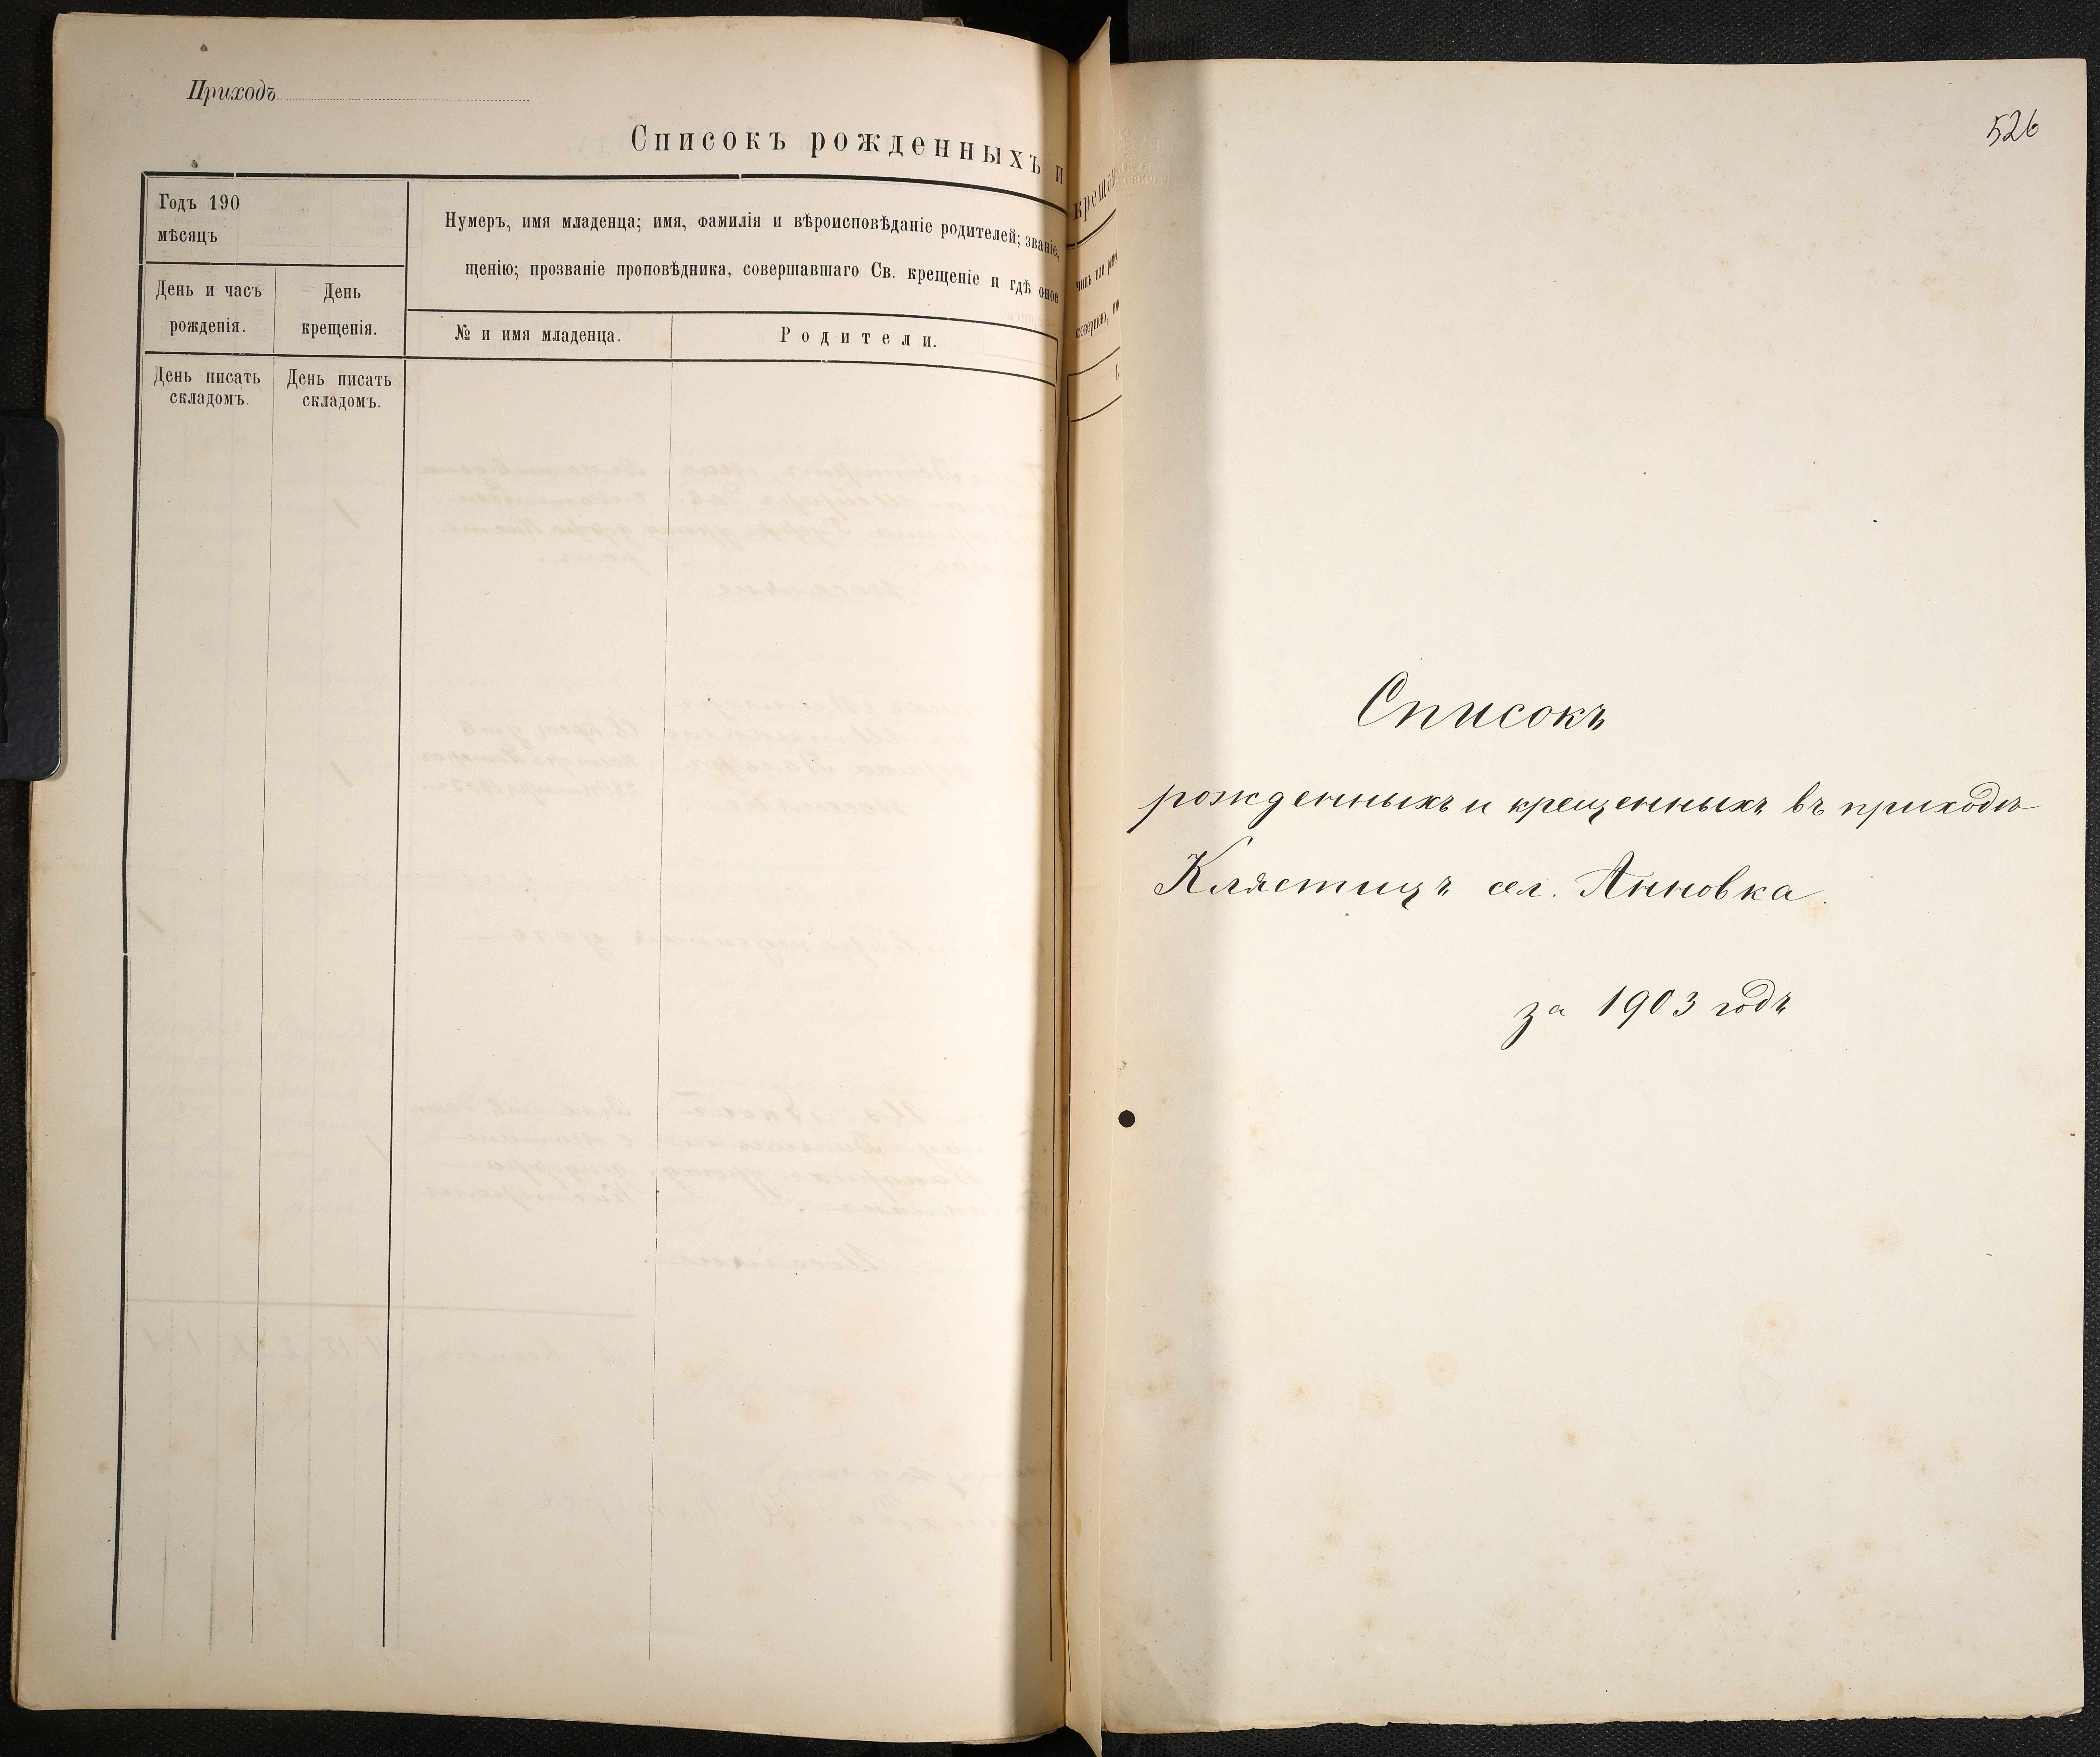 Приходъ
Списокъ рожденныхъ и
Годъ 190
мѣсяцъ
Нумеръ, имя младенца; имя, фамилія и вѣроисповѣданіе родителей; званіе,
щенію; прозваніе проповѣдника, совершавшаго Св. крещеніе и гдѣ оное
День и часъ
рожденія.
День
крещенія.
№ и имя младенца.
Родители.
День писать
складомъ.
День писать
складомъ.
526
Списокъ
рожденныхъ и крещенныхъ въ приходѣ
Клястицъ сел. Анновка
за 1903 годъ